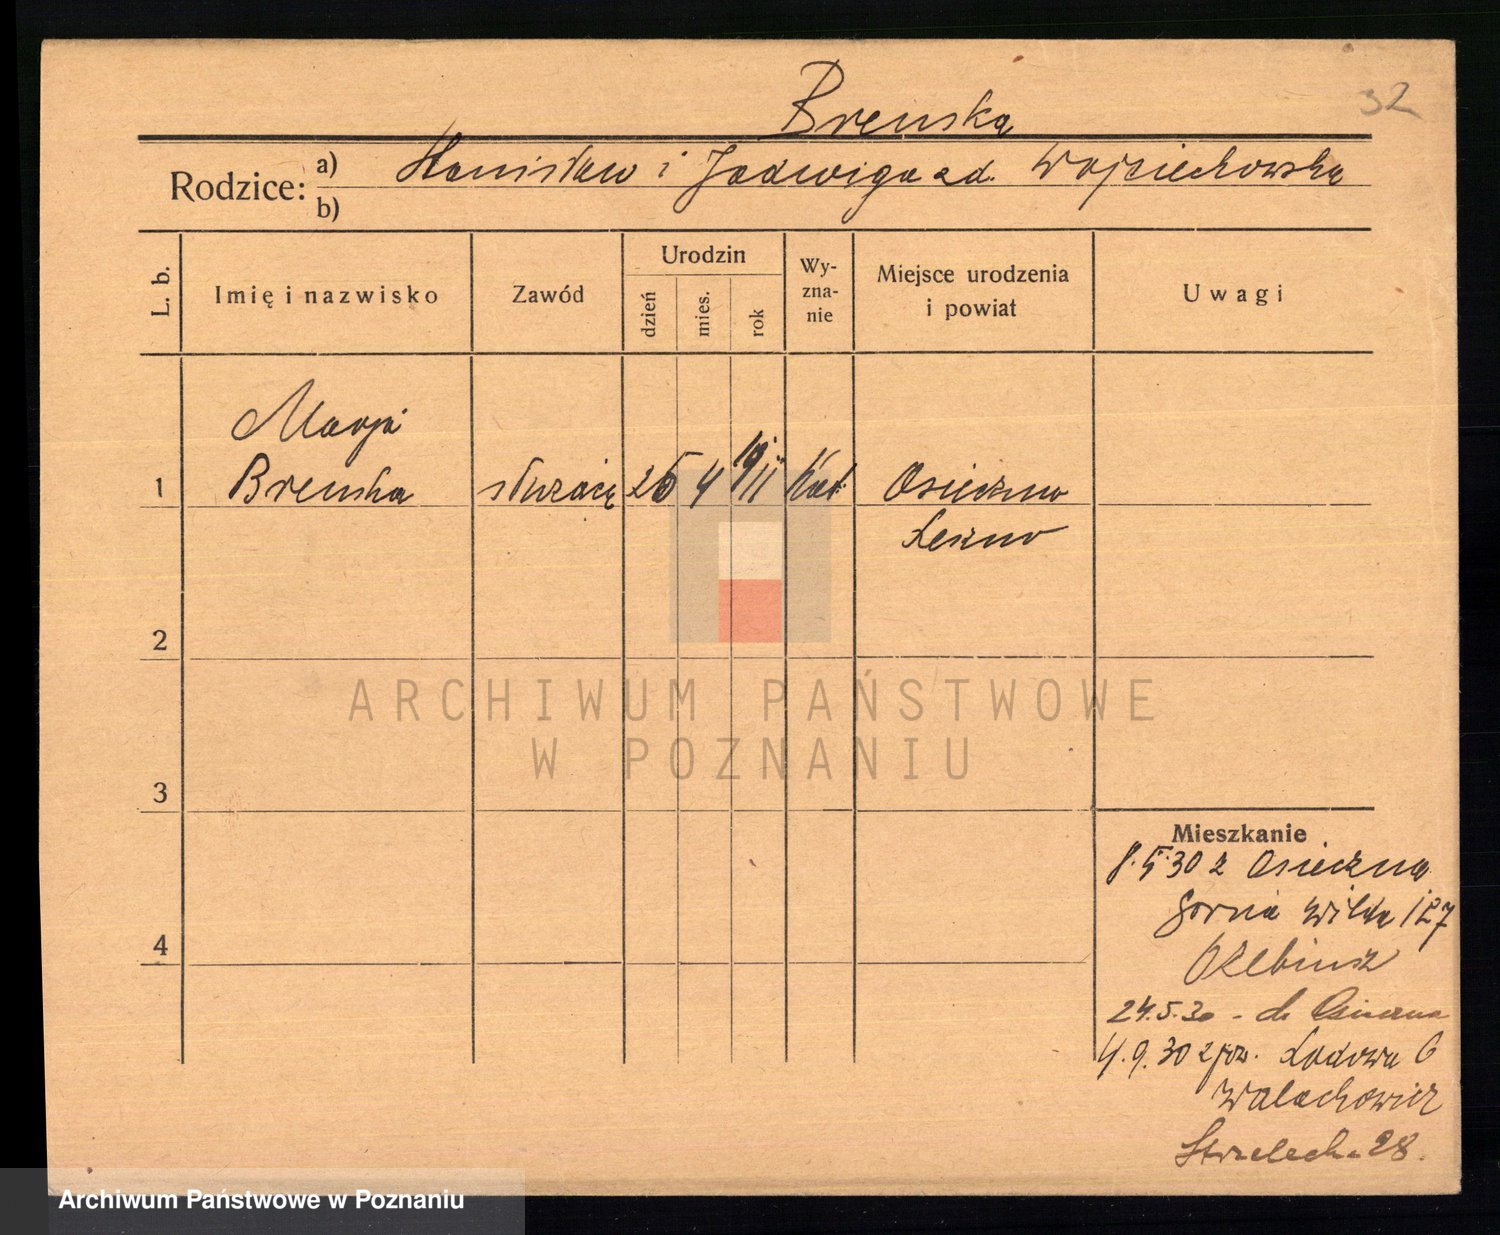 32
Brenska
Rodzice: a) Stanisław i Jadwiga zd. Wojciechowska
b)
L. b.
Imię i nazwisko
Zawód
Urodzin
dzień
mies.
rok
Wy-
zna-
nie
Miejsce urodzenia
i powiat
Uwagi
Marja
1 Brenska służącą 25 4 1911 Kat. Osieczno
Leszno
2
ARCHIWUM PAŃSTWOWE
W POZNANIU
3
Mieszkanie
8.5.30 z Osieczna
Górna Wilda 127
4
24.5.30 - do Osieczna
4.9.30 z pow. Lodowa 6
Walachowicz
Strzelecka 28.
Archiwum Państwowe w Poznaniu